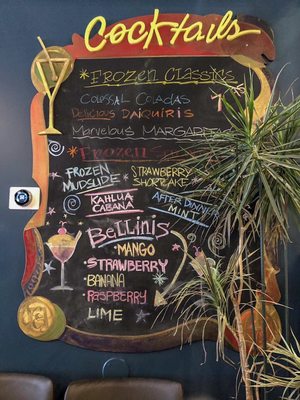 Cocktails
Frozen Classics
Colossal Coladas
Delicious DAIQUIRIS
Marvelous MARGARITAS
Frozen
FROZEN MUDSLIDE
STRAWBERRY SHORTCAKE
KAHLUA CABANA
AFTER DINNER MINT
BELLINIS
MANGO
STRAWBERRY
BANANA
RASPBERRY
LIME